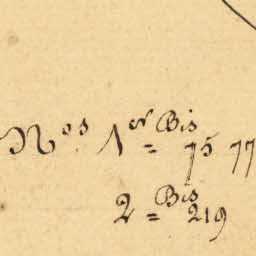 Nos 1er = Bis 75 77
2 = Bis 219